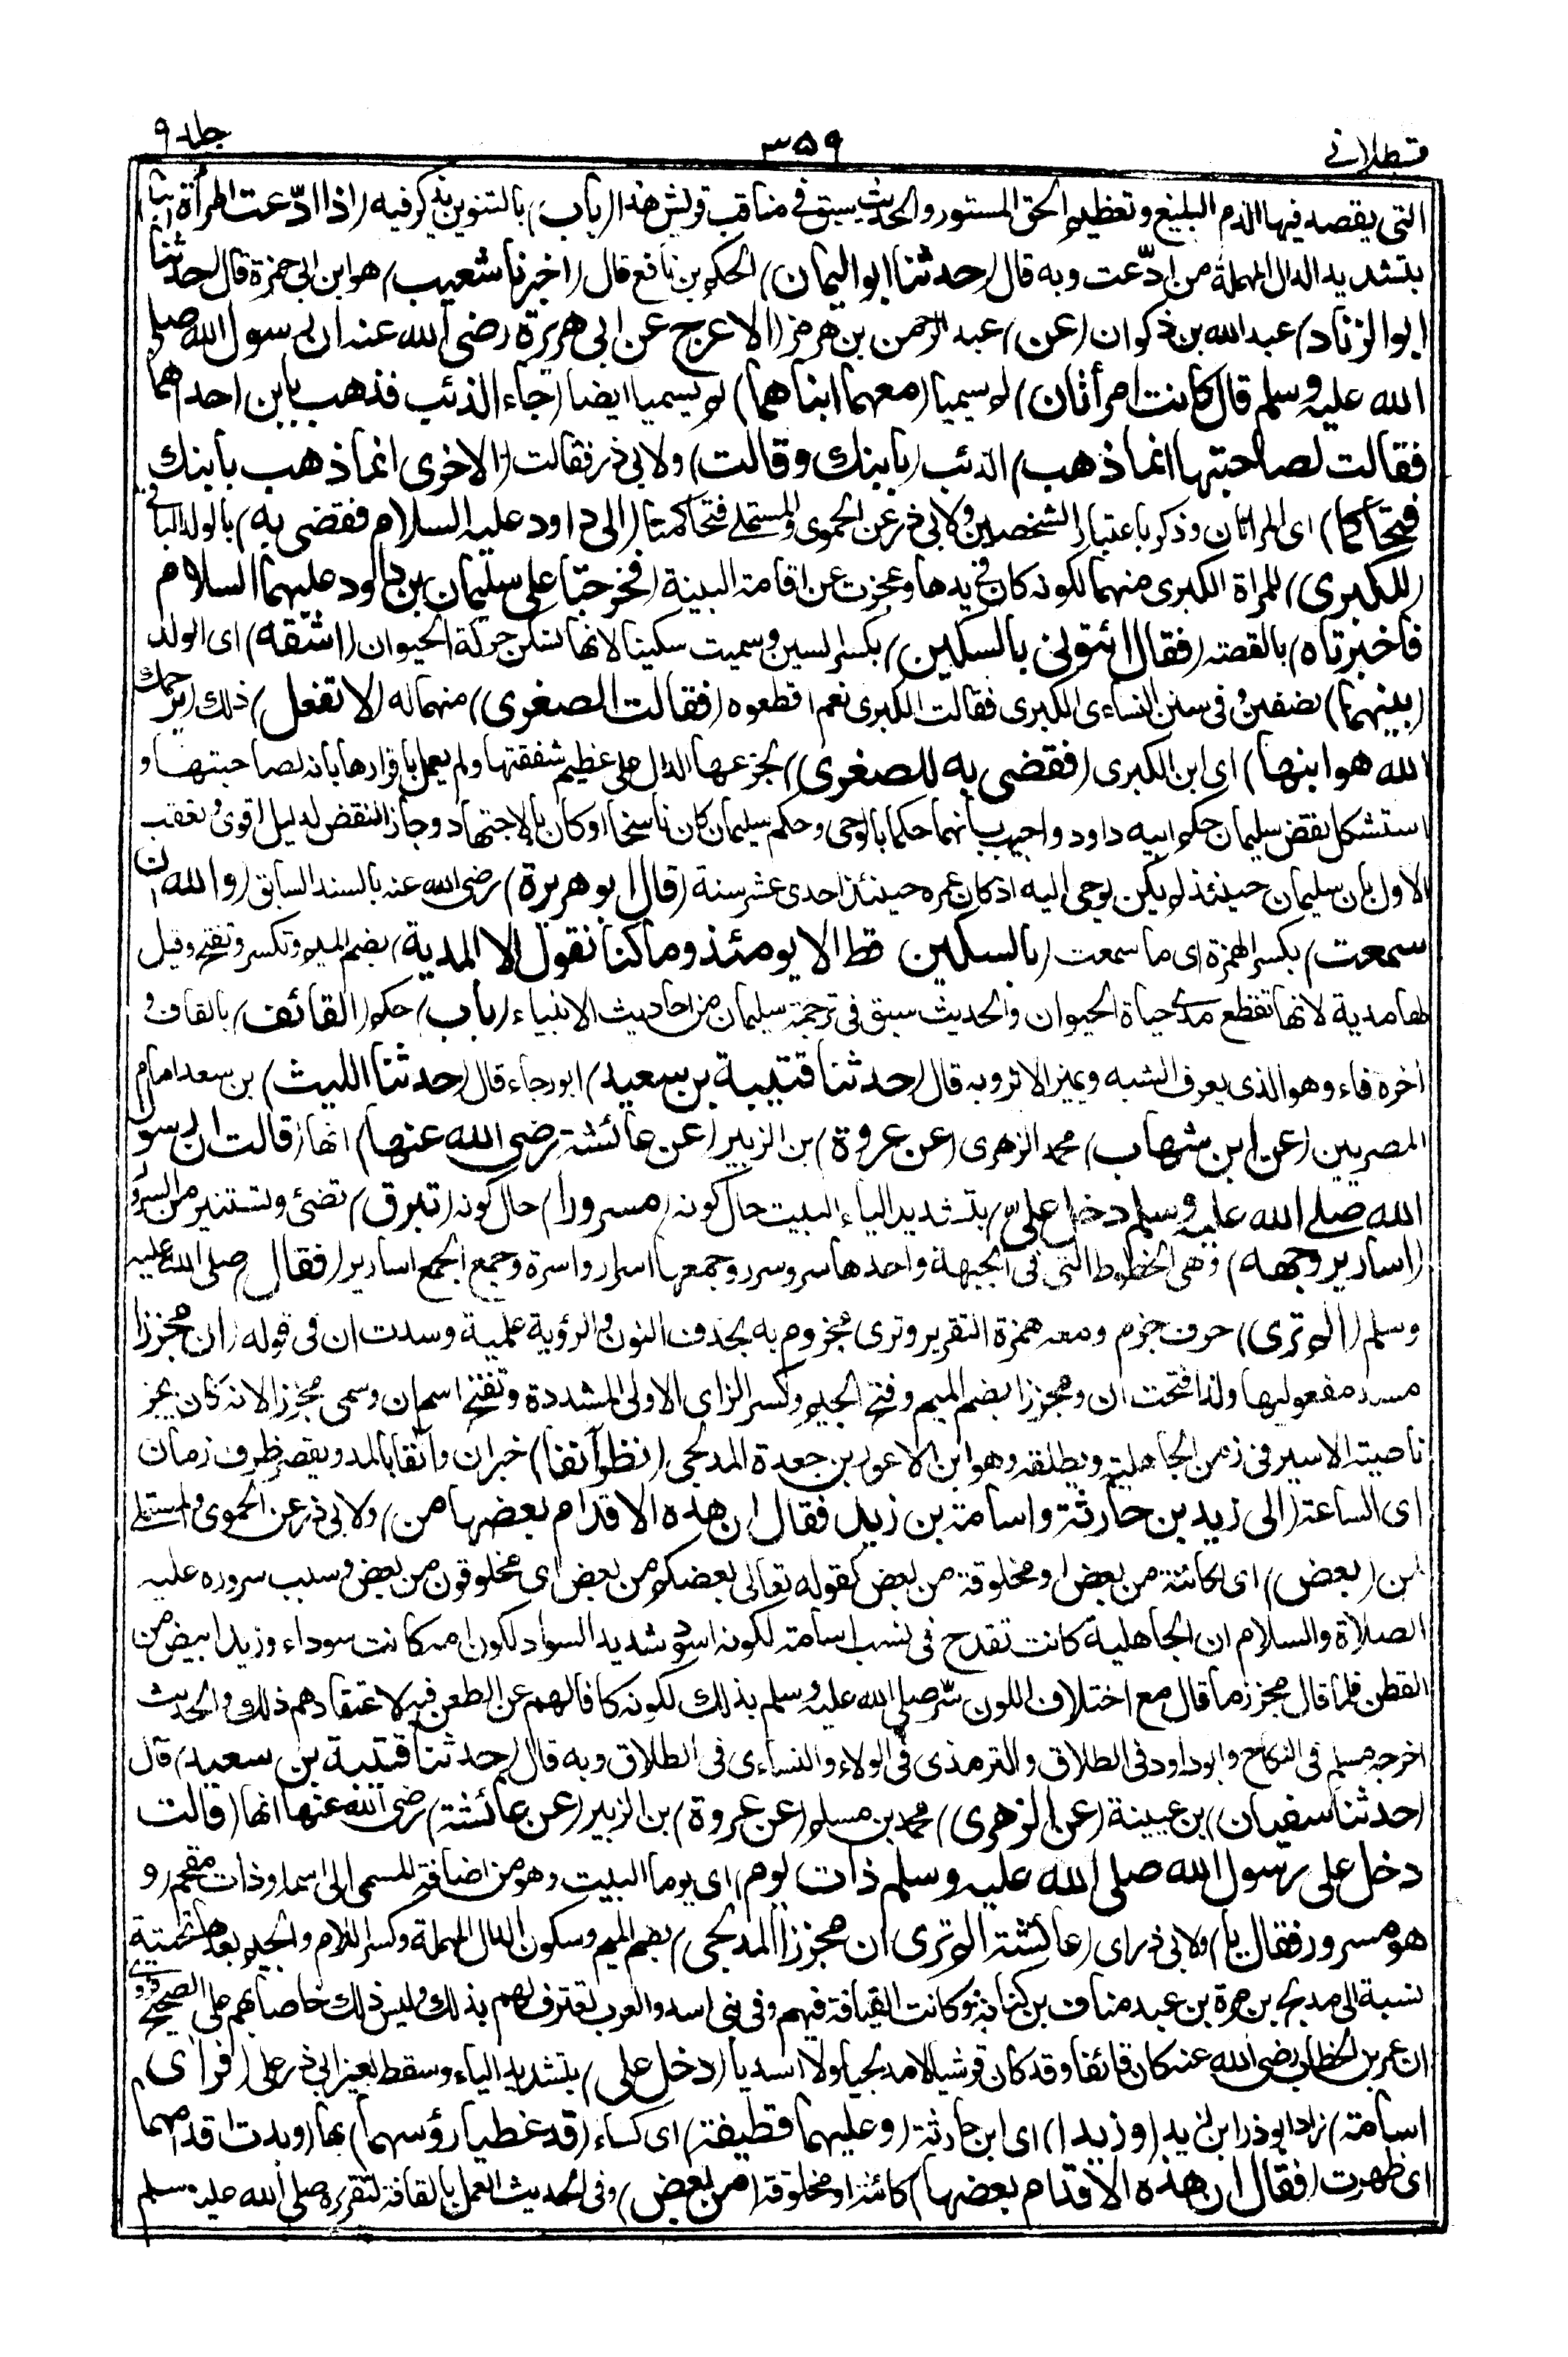 قسطلانی ٣٥٩ جلد ٩
التی یقصد فیها الذم البلیغ وتعظیم الحق المستور والحدیث سبق فی مناقب قریش هذا (باب) بالتنوین یذکر فیه (اذا ادّعت المرأة ابنا)
بتشدید الدال المهملة من ادّعت وبه قال (حدثنا ابو الیمان) الحکم بن نافع قال (اخبرنا شعیب) هو ابن ابی حمزة قال (حدثنا
ابو الزناد) عبد الله بن ذکوان (عن) عبد الرحمن بن هرمز (الاعرج عن ابی هریرة رضی الله عنه ان رسول الله صلی
الله علیه وسلم قال کانت امرأتان) لم یسمیا (معهما ابناهما) لم یسمیا ایضا (جاء الذئب فذهب بابن احداهما
فقالت لصاحبتها انما ذهب) الذئب (بابنك وقالت) ولابی ذر فقالت (الاخری انما ذهب بابنك
فتحاکما) ای المرأتان وذکر باعتبار الشخصین ولابی ذر عن الحموی والمستملی فتحاکمتا (الی داود علیه السلام فقضی به) بالولد الباقی
(للکبری) للمرأة الکبری منهما لکونه کان فی یدها وعجزت عن اقامة البینة (فخرجتا علی سلیمان بن داود علیهما السلام
فاخبرتاه) بالقصة (فقال ائتونی بالسکین) بکسر السین وسمیت سکینا لانها تسکن حرکة الحیوان (اشقه) ای الولد
(بینهما) نصفین وفی سنن النساءی الکبری فقالت الکبری نعم اقطعوه (فقالت الصغری) منهما له (لا تفعل) ذلك (یرحمك
الله هو ابنها) ای ابن الکبری (فقضی به للصغری) لجزعها الدال علی عظیم شفقتها ولم یعمل باقرارها بانه لصاحبتها و
استشکل نقض سلیمان حکم ابیه داود واجیب بانهما حکما بالوحی وحکم سلیمان کان ناسخا او کان بالاجتهاد وجاز النقض لدلیل اقوی وتعقب
الاول بان سلیمان حینئذ لم یکن یوحی الیه اذ کان عمره حینئذ احدی عشر سنة (قال ابو هریرة) رضی الله عنه بالسند السابق (والله ان
سمعت) بکسر الهمزة ای ما سمعت (بالسکین قط الا یومئذ وما کنا نقول الا المدیة) بضم المیم وتکسر وتفتح وقیل
لها مدیة لانها تقطع مدی حیاة الحیوان والحدیث سبق فی ترجمة سلیمان من احادیث الانبیاء (باب) حکم (القائف) بالقاف و
اخره فاء وهو الذی یعرف الشبه ویمیز الاثر وبه قال (حدثنا قتیبة بن سعید) ابو رجاء قال (حدثنا اللیث) بن سعد امام
المصریین (عن ابن شهاب) محمد الزهری (عن عروة) بن الزبیر (عن عائشة رضی الله عنها) انها (قالت ان رسول
الله صلی الله علیه وسلم دخل علیّ) بتشدید الیاء البیت حال کونه (مسرورا) حال کونه (تبرق) تضئ وتستنیر من السرور
(اساریر وجهه) وهی الخطوط التی فی الجبهة واحدها سر وسرر وجمعها اسرار واسرة وجمع الجمع اساریر (فقال) صلی الله علیه
وسلم (الم تری) حرف جزم ومعه همزة التقریر وتری مجزوم به بحذف النون والرؤیة علمیة وسدت ان فی قوله (ان مجززا
مسد مفعولیها ولذا فتحت ان ومجززا بضم المیم وفتح الجیم وکسر الزای الاولی المشددة وتفتح اسم ان وسمی مجززا لانه کان یجز
ناصیة الاسیر فی زمن الجاهلیة ویطلقه وهو ابن الاعور بن جعدة المدلجی (نظر آنفا) خبر ان وآنفا بالمد ویقصر ظرف زمان
ای الساعة (الی زید بن حارثة واسامة بن زید فقال ان هذه الاقدام بعضها من) ولابی ذر عن الحموی والمستملی
لمن (بعض) ای لکائنة من بعض او مخلوقة من بعض کقوله تعالی بعضکم من بعض ای مخلوقون من بعض وسبب سروره علیه
الصلاة والسلام ان الجاهلیة کانت تقدح فی نسب اسامة لکونه اسود شدید السواد لکون امه کانت سوداء وزید ابیض من
القطن فلما قال مجزز ما قال مع اختلاف اللون سرّ صلی الله علیه وسلم بذلك لکونه کافا لهم عن الطعن فیه لاعتقادهم ذلك والحدیث
اخرجه مسلم فی النکاح وابو داود فی الطلاق والترمذی فی الولاء والنساءی فی الطلاق وبه قال (حدثنا قتیبة بن سعید) قال
(حدثنا سفیان) بن عیینة (عن الزهری) محمد بن مسلم (عن عروة) بن الزبیر (عن عائشة) رضی الله عنها انها (قالت
دخل علی رسول الله صلی الله علیه وسلم ذات یوم) ای یوما البیت وهو من اضافة المسمی الی اسمه او ذات مقحم (و
هو مسرور فقال یا) ولابی ذر ای (عائشة الم تری ان مجززا المدلجی) بضم المیم وسکون الدال المهملة وکسر اللام والجیم بعدها تحتیة
نسبة الی مدلج بن مرة بن عبد مناف بن کنانة وکانت القیافة فیهم وفی بنی اسد والعرب تعترف لهم بذلك ولیس ذلك خاصا بهم علی الصحیح وروی
ان عمر بن الخطاب رضی الله عنه کان قائفا وقد کان قرشیا لا مدلجیا ولا اسدیا (دخل علی) بتشدید الیاء وسقط لغیر ابی ذر علی (فرأی
اسامة) زاد ابو ذر ابن زید (وزیدا) ای ابن حارثة (وعلیهما قطیفة) ای کساء (قد غطیا رؤسهما) بها (وبدت اقدامهما
ای ظهرت (فقال ان هذه الاقدام بعضها) کائنة او مخلوقة (من بعض) وفی الحدیث العمل بالقافة لتقریره صلی الله علیه وسلم